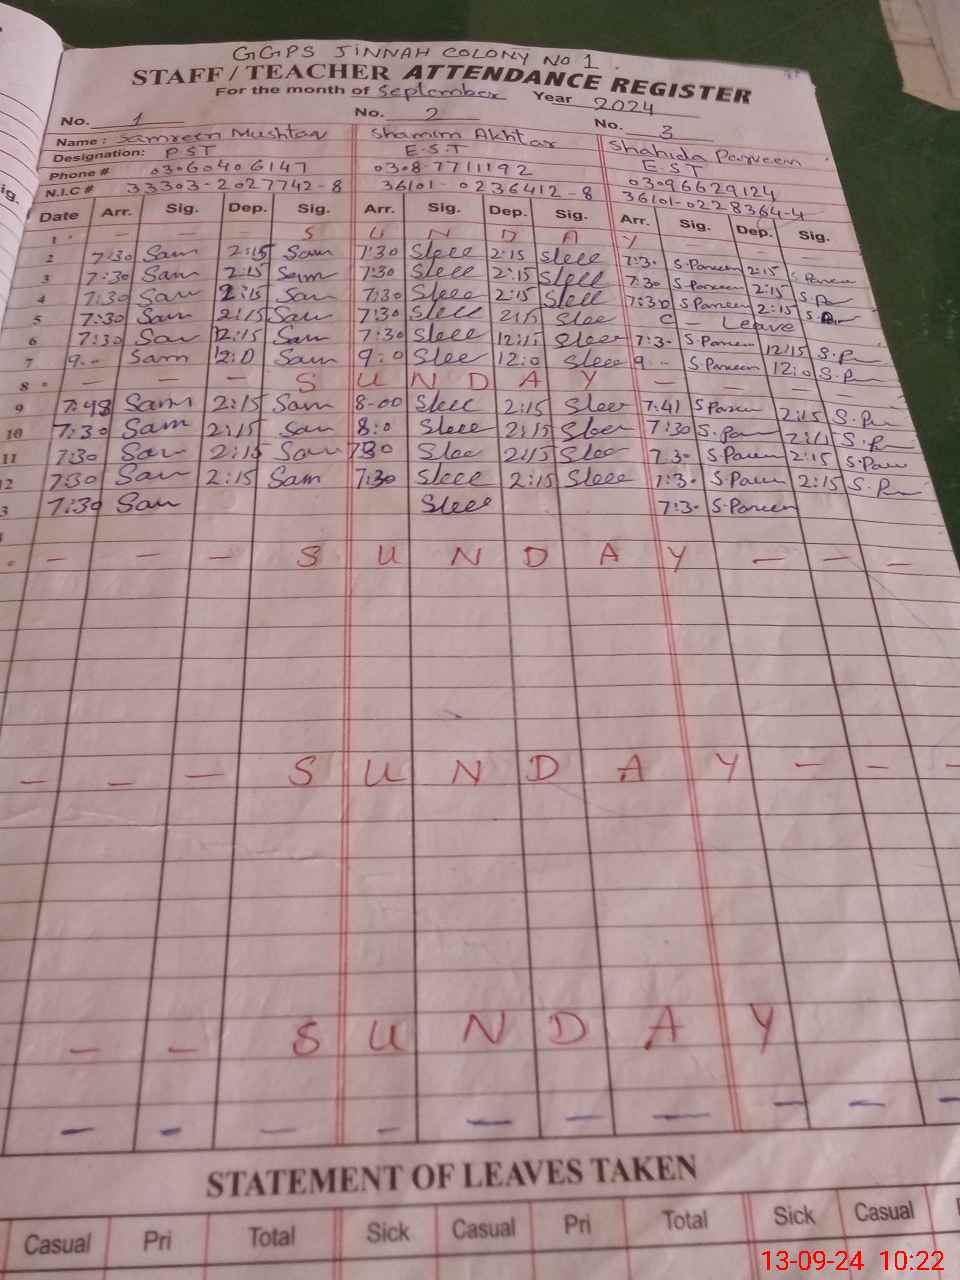 GGPS JINNAH COLONY No 1.
STAFF/TEACHER ATTENDANCE REGISTER
For the month of September Year 2024
No. 1 No. 2 No. 3
Name: Samreen Mushtaq Shamim Akhtar Shahida Parveen
Designation: P.S.T E.S.T E.S.T
Phone # 03060406147 0308-7711192 03096629124
N.I.C # 33303-2027742-8 36101-0236412-8 36101-0228364-4
Date Arr. Sig. Dep. Sig. Arr. Sig. Dep. Sig. Arr. Sig. Dep. Sig.
1 - - - S U N D A Y - - -
2 7:30 Sam 2:15 Sam 7:30 Sleee 2:15 Sleee 7:3. S.Parveen 2:15 S.Parveen
3 7:30 Sam 2:15 Sam 7:30 Sleee 2:15 Sleee 7:30 S.Parveen 2:15
4 7:30 Sam 2:15 Sam 7:30 Sleee 2:15 Sleee 7:30 S.Parveen 2:15
5 7:30 Sam 2:15 Sam 7:30 Sleee 2:15 Sleee C - Leave
6 7:30 Sam 12:15 Sam 7:30 Sleee 12:15 Sleee 7:3. S.Parveen 12:15
7 9.. Sam 12:0 Sam 9:0 Sleee 12:0 Sleee 9 .. S.Parveen 12:0
8 - - - S U N D A Y - - -
9 7:48 Sam 2:15 Sam 8-00 Sleee 2:15 Sleee 7:41 S Parveen 2:15
10 7:30 Sam 2:15 Sam 8:0 Sleee 2:15 Sleee 7:30 S.Parveen
11 7:30 Sam 2:15 Sam 7:30 Sleee 2:15 Sleee 7.3. S.Parveen 2:15
12 7:30 Sam 2:15 Sam 7:30 Sleee 2:15 Sleee 7:3. S.Parveen 2:15
3 7:30 Sam Sleee 7:3. S.Parveen
- - - S U N D A Y - - -
- - - S U N D A Y - - -
- - S U N D A Y
- - - - - - - - - -
STATEMENT OF LEAVES TAKEN
Casual Pri Total Sick Casual Pri Total Sick Casual
13-09-24 10:22